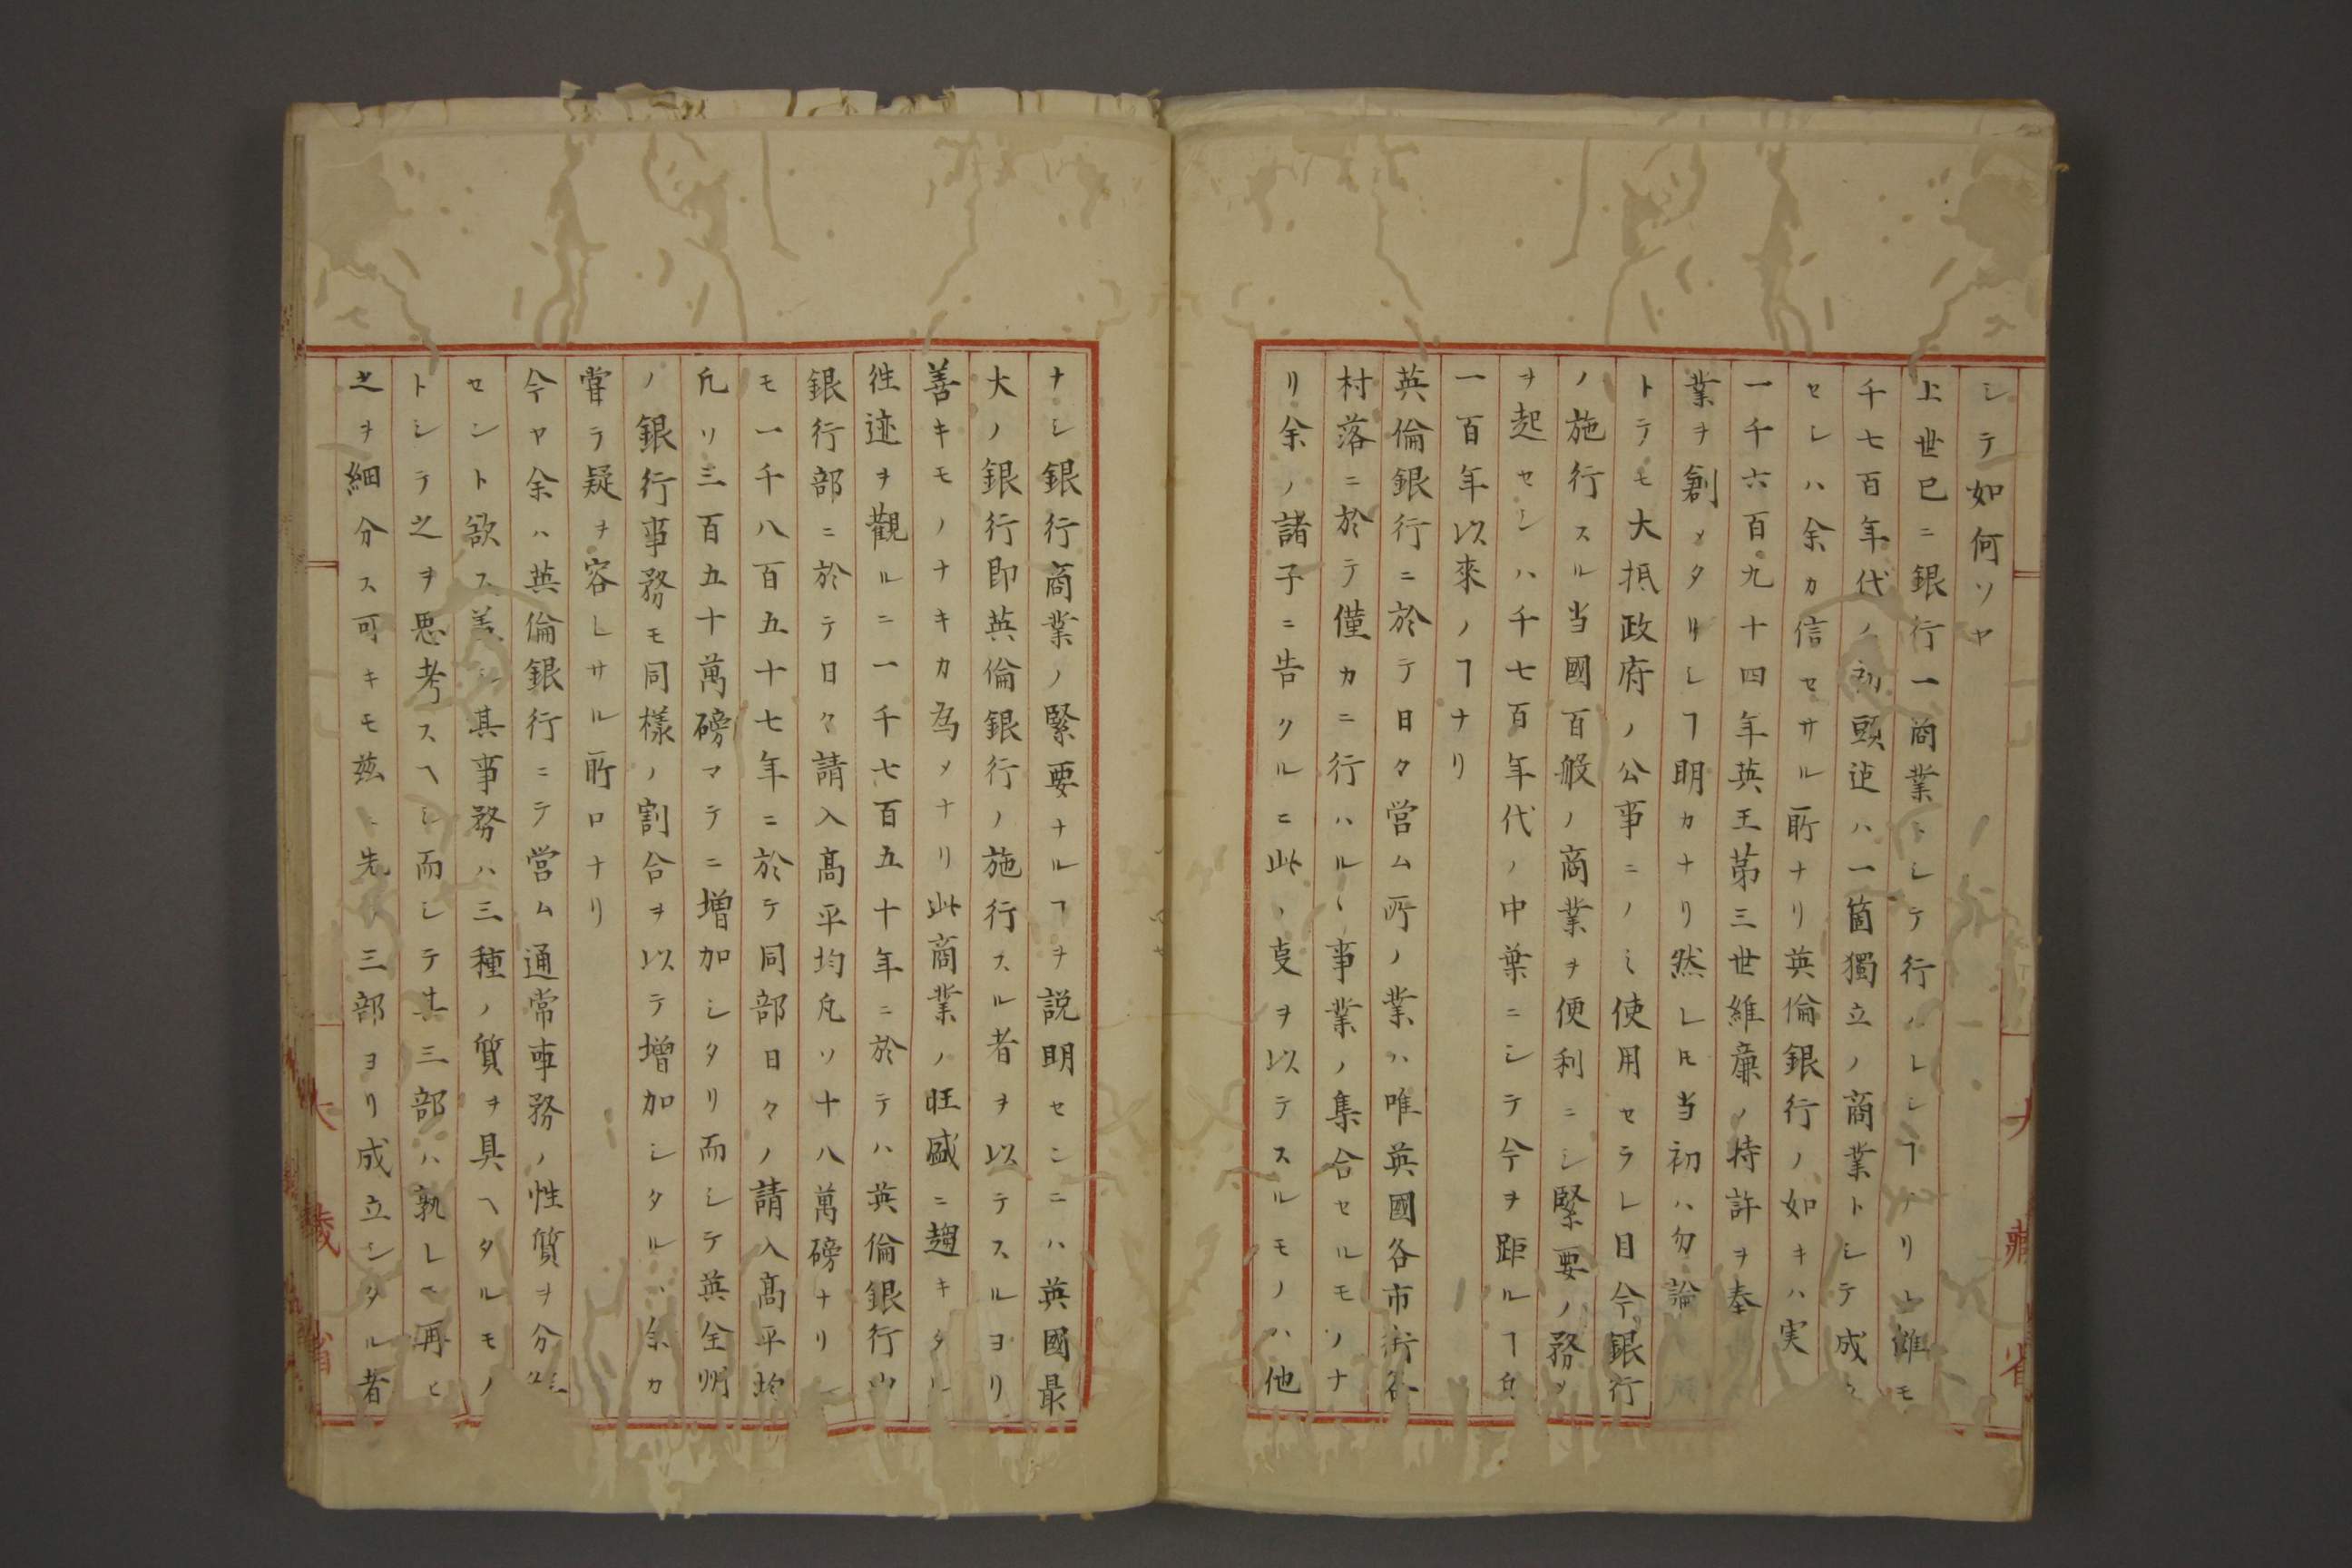 シテ如何ソヤ
上世已ニ銀行一商業トシテ行ハレシヿアリト雖モ
千七百年代ノ初頭迄ハ一箇獨立ノ商業トシテ成立
セシハ余カ信セサル所ナリ英倫銀行ノ如キハ実
一千六百九十四年英王第三世維廉ノ特許ヲ奉
業ヲ創メタリシヿ明カナリ然レ𪜈当初ハ勿論
トテモ大抵政府ノ公事ニノミ使用セラレ目今銀行
ノ施行スル当國百般ノ商業ヲ便利ニシ緊要ノ務メ
ヲ起セシハ千七百年代ノ中葉ニシテ今ヲ距ルヿ
一百年以來ノヿナリ
英倫銀行ニ於テ日々営ム所ノ業ハ唯英國各市街各
村落ニ於テ僅カニ行ハルヽ事業ノ集合セルモノナ
リ余ノ諸子ニ告クルニ此ヽ叓ヲ以テスルモノハ他
ナシ銀行商業ノ緊要ナルヿヲ説明センニハ英國最
大ノ銀行即英倫銀行ノ施行スル者ヲ以テスルヨリ
善キモノナキカ為メナリ此商業ノ旺盛ニ趨キタル
徃迹ヲ觀ルニ一千七百五十年ニ於テハ英倫銀行出
銀行部ニ於テ日々請入高平均凡ソ十八萬磅ナリシ
モ一千八百五十七年ニ於テ同部日々ノ請入高平均
凡ソ三百五十萬磅マテニ増加シタリ而シテ英全州
ノ銀行事務モ同樣ノ割合ヲ以テ増加シタルハ余カ
甞テ疑ヲ容レサル所ロナリ
今ヤ余ハ英倫銀行ニテ営ム通常事務ノ性質ヲ分解
セント欲ス盖シ其事務ハ三種ノ質ヲ具ヘタルモノ
トシテ之ヲ思考スヘシ而シテ其三部ハ孰レモ再ヒ
之ヲ細分ス可キモ茲ニ先ツ三部ヨリ成立シタル者
大藏省
大藏省